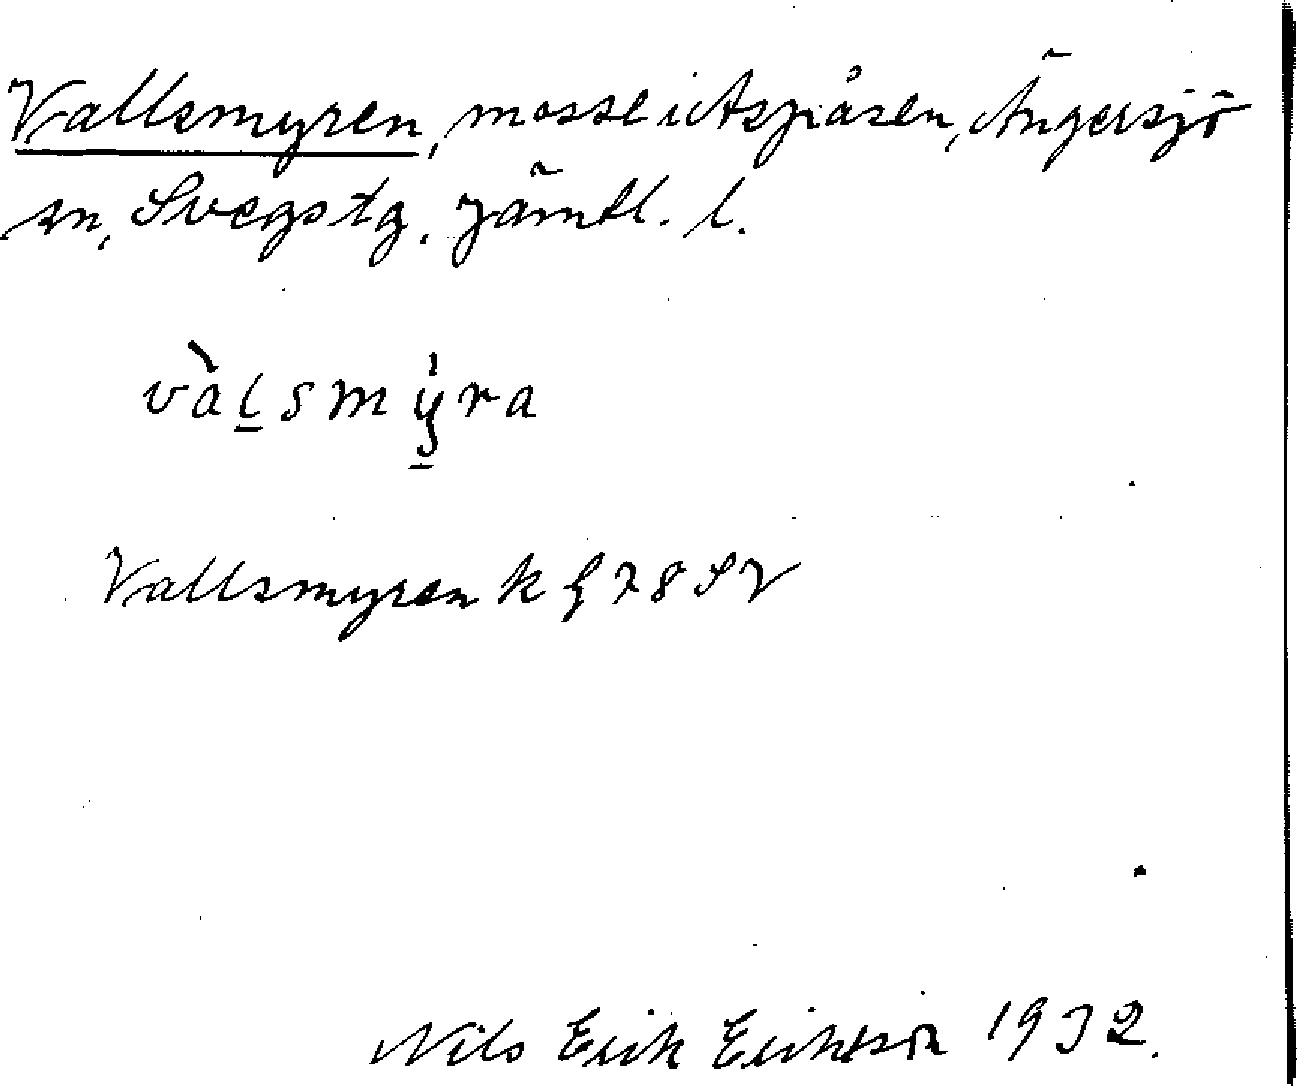 Vallsmyren, mosse i Aspåsen, Ängersjö
sn, Svegs tg. Jämtl. l.
vàl̲smẏ̲ra
Vallsmyren k g 78 SV
Nils Erik Eriksson 1932.